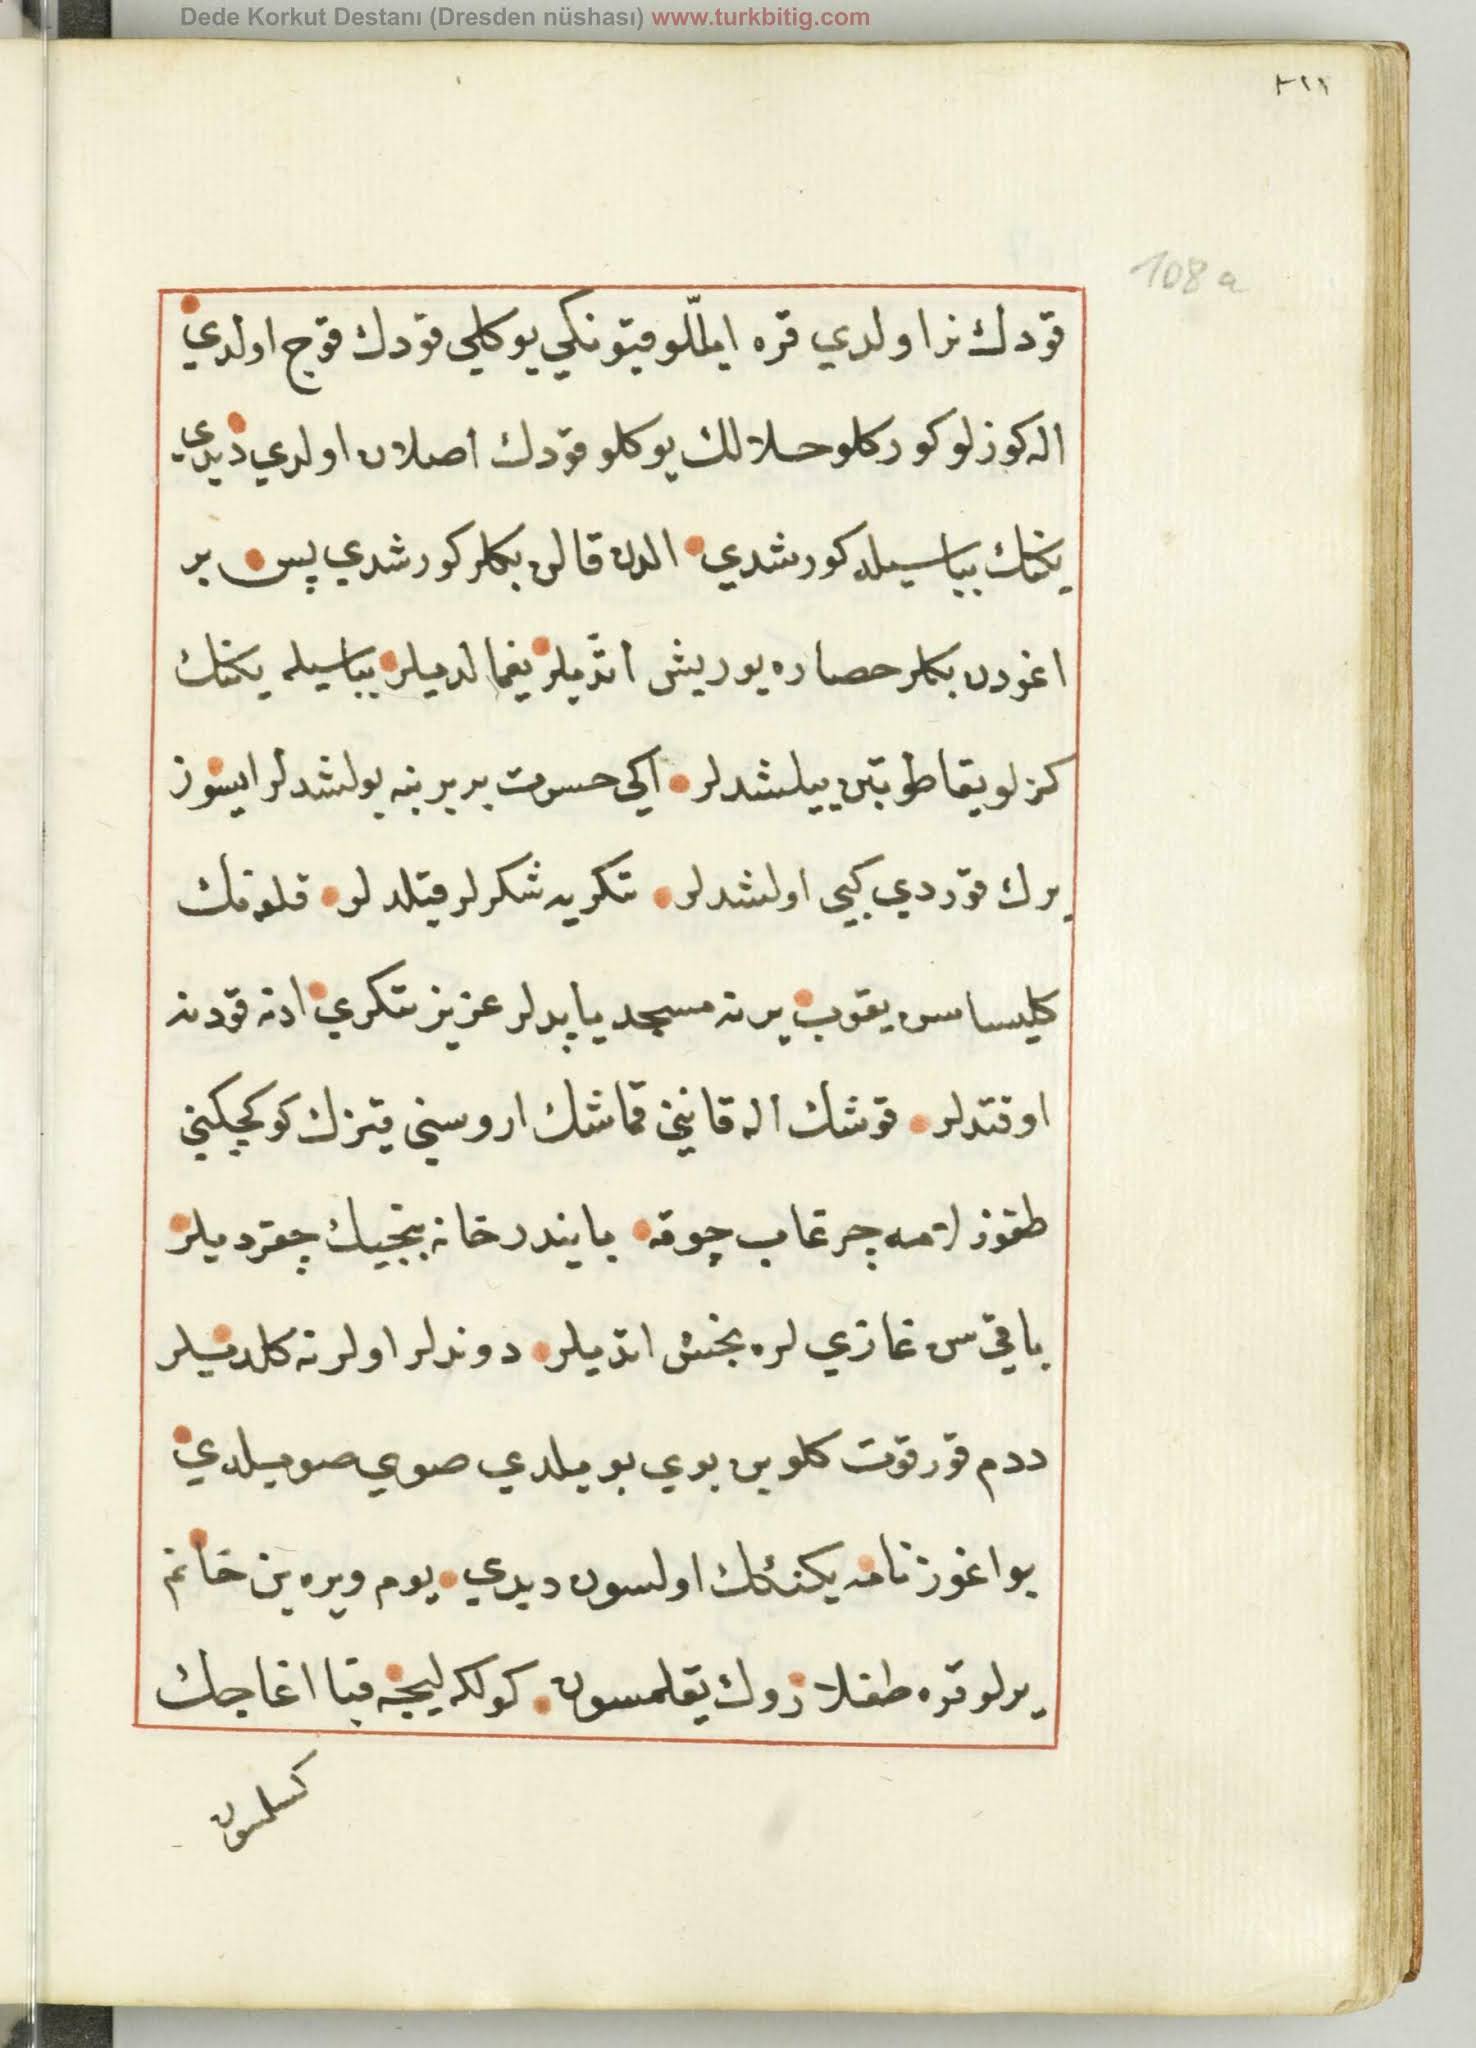 Dede Korkut Destanı (Dresden nüshası) www.turkbitig.com
٢١١
108 a
قودك نر اولدي قره ایللّو قیتونكي یوكلي قودك قوج اولدي
اله كوزلو كوركلو حلالك یوكلو قودك اصلان اولدي دیدي
یكنك بباسیله كورشدي الدن قالن بكلر كورشدي پس بر
اغوردن بكلر حصاره یوریش اتدّیلر یغمالدیلر بباسیله یكنك
كزلو یقا طوتبن ییلشدلر اكي حسرت بر برینه بولشدلر ایسوز
یرك قوردي كیبي اولشدلر تنكریه شكرلر قیلدلر قلعه نك
كلیساسن یقوب یرنه مسجد یاپدلر عزیز تنكري ادنه قودنه
اوقتدلر قوشك اله قانینی قماشك اروسینی قیزك كوكچكینی
طقوز لامه چرغاب چوقه بایندر خانه پنجیك چقردیلر
باقیسن غازي لره بخش اتدیلر دوندلر اولرنه كلدیلر
ددم قورقوت كلوبن بوي بویلدي صوي صویلدي
بو اغوزنامه یكنكك اولسون دیدي یوم ویره ین خانم
یرلو قره طغلاروك یقلمسون كولكه لیجه قبا اغاجك
كسلمسون